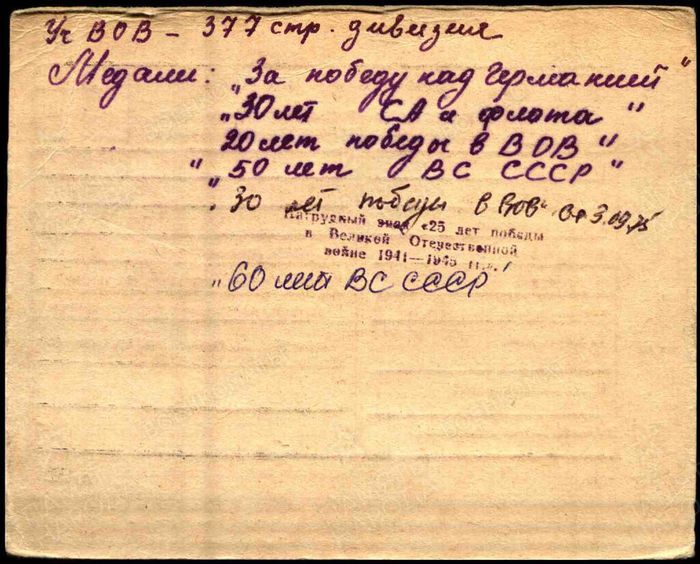 Уч ВОВ – 377 стр. дивизия
Медали: „За победу над Германией"
„30 лет СА и флота"
20 лет победы в ВОВ"
" „50 лет ВС СССР"
„30 лет победы в ВОВ" от 3.09.75
Нагрудный знак «25 лет победы
в Великой Отечественной
войне 1941—1945 гг.»
„60 лет ВС СССР"